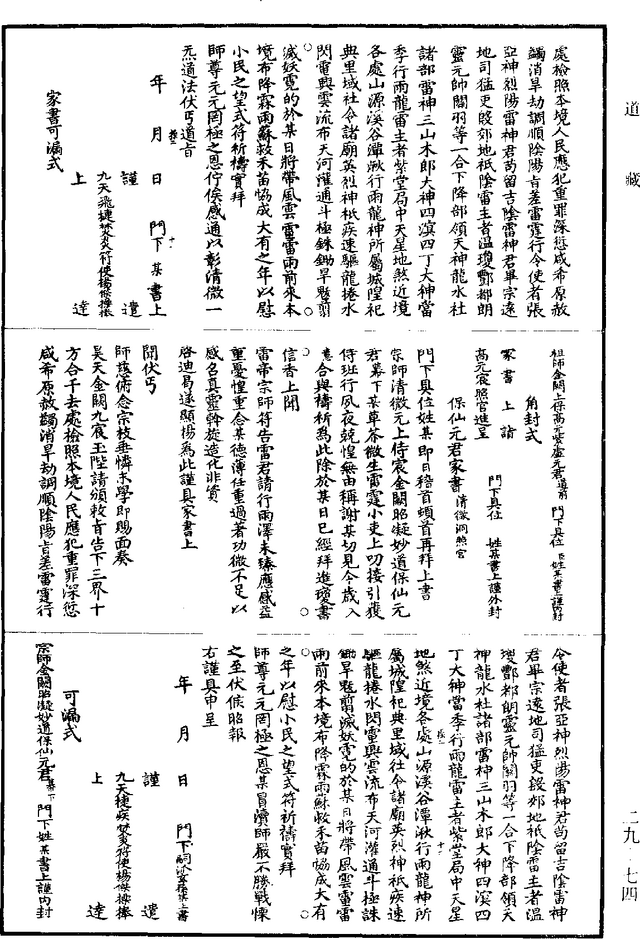 道藏
處檢照本境人民應犯重罪深愆咸希原赦
蠲消旱劫調順陰陽旨差雷霆行令使者張
亞神烈陽雷神君苟留吉陰雷神君畢宗遠
地司猛吏殷郊地祇陰雷主者溫瓊酆都朗
靈元帥關羽等一合下降部領天神龍水社
諸部雷神三山木郎大神四溟四丁大神當
季行雨龍雷主者紫堂局中天星地煞近境
各處山源溪谷潭湫行雨龍神所屬城隍祀
典里域社令諸廟英烈神祇疾速驅龍捲水
閃電興雲流布天河灌通斗極銖鋤旱魃剪
滅妖霓的於某日將帶風雲雷雷雨前來本
境布降霖雨蘇救禾苗協成大有之年以慰
小民之望式符祈禱實拜
師尊元元罔極之恩佇俟感通以彰清微一
炁道法伏丐道旨
年 月 日 門下某書上
謹 遣
九天飛捷焚炎符使楊傑捧捺
上 達
家書可漏式
祖師金闕上保高元紫虛元君道前 門下具位 臣姓某書上謹內封
角封式
保仙元君家書 清微洞照宮
高元宸照宮進呈
家書 上詣
門下具位 姓某書上謹外封
門下具位姓某即日稽首頓首再拜上書
宗師清微元上侍宸金闕昭凝妙道保仙元
君幕下某草芥微生雷霆小吏上叨接引獲
侍班行夙夜兢惶無由稱謝某切見今歲入
應合與禱祈為此除於某日已經拜進瓊書
信香上聞
雷帝宗師符告雷君請行雨澤未臻應感益
重憂惶重念某德薄任重過著功微不足以
感名真靈斡旋造化非質
啓迪曷遂顯揚為此謹具家書上
聞伏丐
師護俯念宗枝垂憐末學即賜面奏
昊天金闕九宸玉陛請頒敕旨告下三界十
方合干去處檢照本境人民應犯重罪深愆
咸希原赦蠲消旱劫調順陰陽旨差雷霆行
令使者張亞神烈陽雷神君苟留吉陰雷神
君畢宗遠地司猛吏殷郊地祇陰雷主者溫
瓊酆都朗靈元帥關羽等一合下降部領天
神龍水社諸部雷神三山木郎大神四溟四
丁大神當季行雨龍雷主者紫堂局中天星
地煞近境各處山源溪谷潭湫行雨龍神所
屬城隍祀典里域社令諸廟英烈神祇疾速
驅龍捲水閃電興雲流布天河灌通斗極誅
鋤旱魃剪滅妖霓的於某日將帶風雲雷雷
雨前來本境布降霖雨蘇救禾苗協成大有
之年以慰小民之望式符祈禱實拜
師尊元元罔極之恩某冒瀆師嚴不勝戰慄
之至伏候昭報
右謹具申呈
年 月 日 門下嗣派 某書
謹 遣
九天捷疾焚炎符使楊傑捧捺
上 達
可漏式
宗師金闕昭凝妙道保仙元君幕下 門下姓某書上謹內封
二九 七四